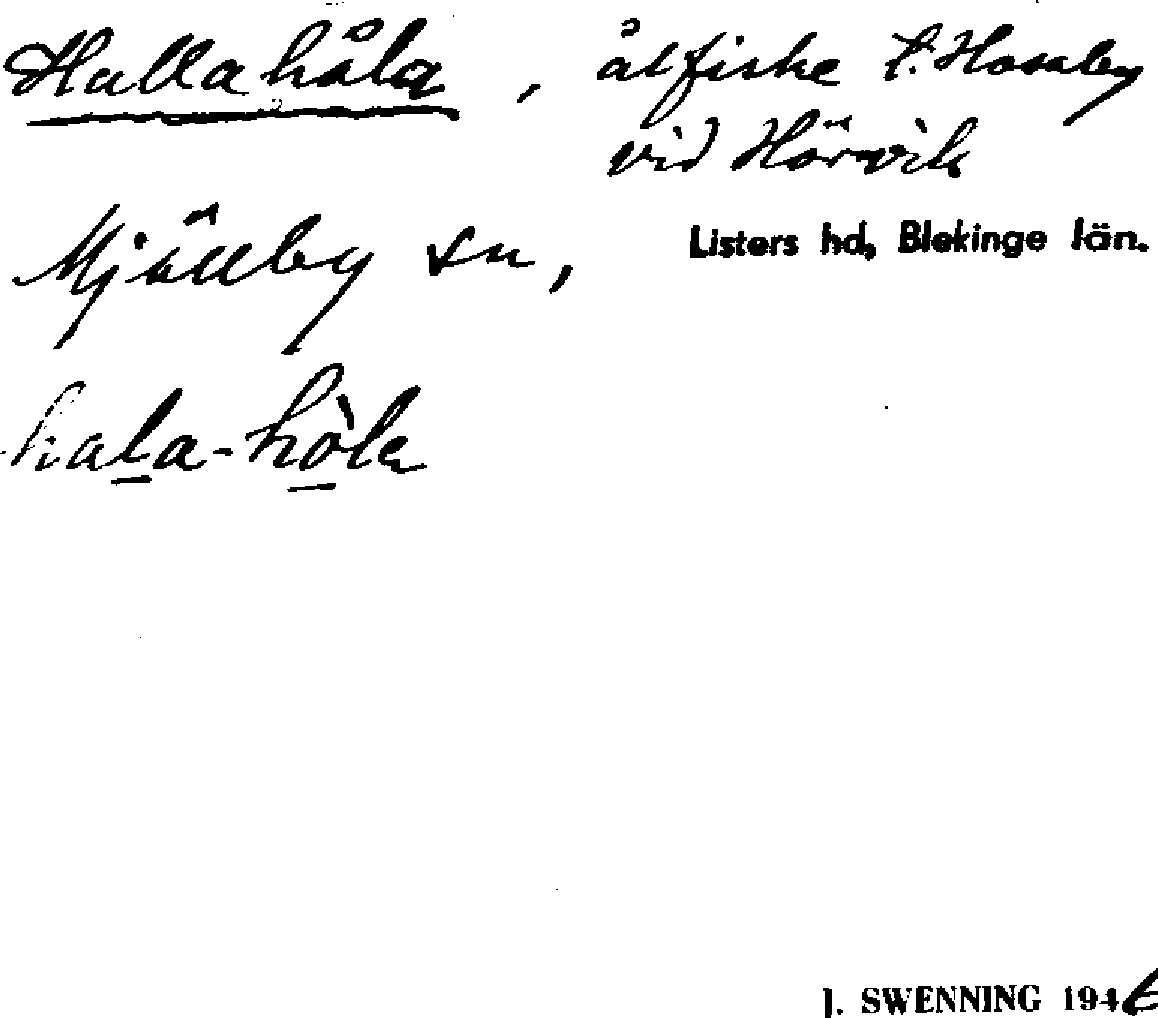 Hallahåla, ålfiske t. Hosaby
vid Hörvik
Mjällby sn, Listers hd, Blekinge län.
hala-hòla
J. SWENNING 1946